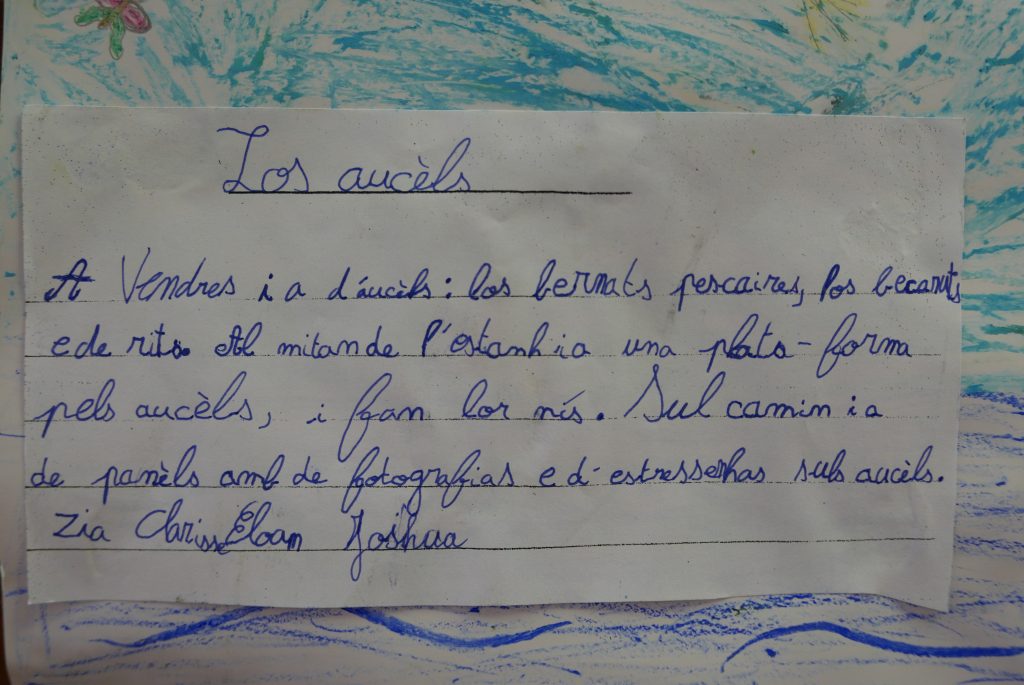 Los aucèls
A Vendres i a d'aucèls : los bernats pescaires, los becaruts
e de rits. Al mitan de l'estanh i a una plata-forma
pels aucèls, i fan lor nis. Sul camin i a
de panèls amb de fotografias e d'estressenhas suls aucèls.
Zia Clarisse Éloam Joshua